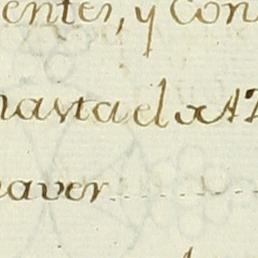 entes, y Con
hasta el x A
haver